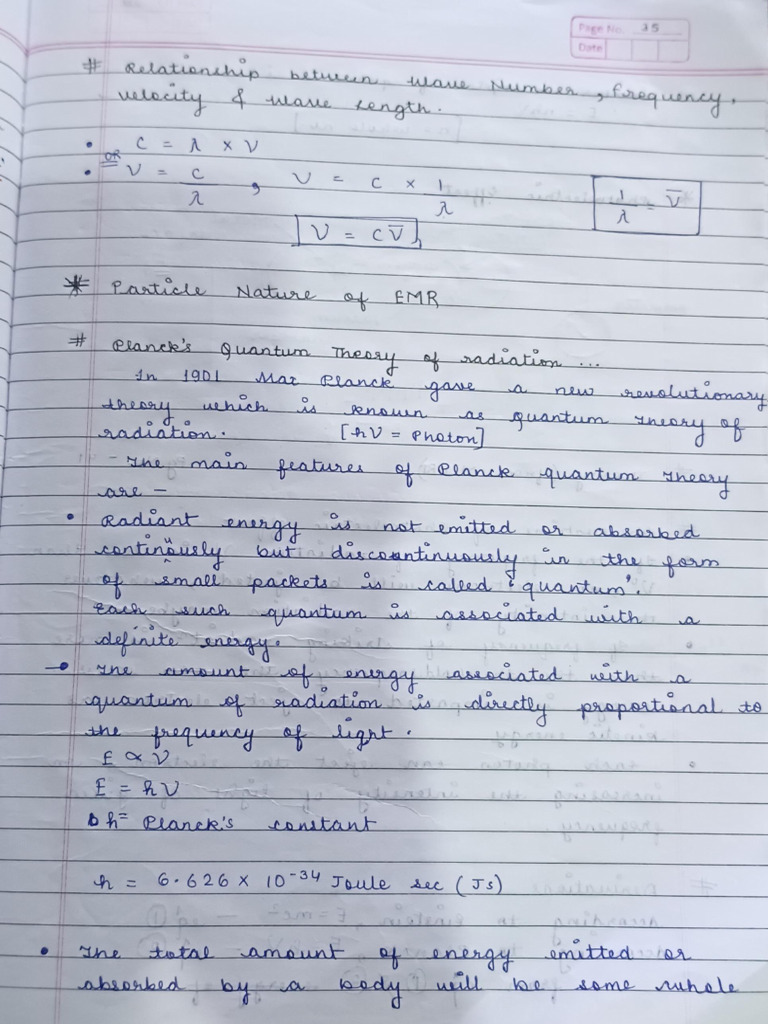 Page No. 25
Date
# Relationship between wave Number, frequency,
velocity & wave length.
• C = λ × ν
OR
• ν = C/λ , ν = C × 1/λ
1/λ = ν̅
ν = Cν̅
* Particle Nature of EMR
# Planck's Quantum Theory of radiation ...
In 1901 Max Planck gave a new revolutionary
theory which is known as quantum theory of
radiation. [hν = Photon]
- The main features of Planck quantum theory
are -
• Radiant energy is not emitted or absorbed
continuously but discontinuously in the form
of small packets is called 'quantum'.
Each such quantum is associated with a
definite energy.
• The amount of energy associated with a
quantum of radiation is directly proportional to
the frequency of light.
E ∝ ν
E = hν
h = Planck's constant
h = 6.626 × 10⁻³⁴ Joule sec (Js)
• The total amount of energy emitted or
absorbed by a body will be some whole